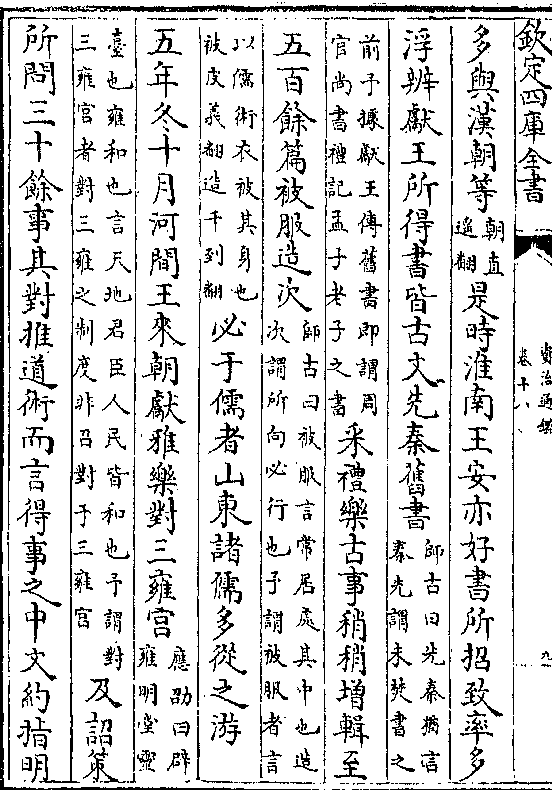 欽定四庫全書
資治通鑑
卷十八
九
多與漢朝等
朝直
遥翻
是時淮南王安亦好書所招致率多
浮辨獻王所得書皆古文先秦舊書
師古曰先秦猶言
秦先謂未焚書之
前予據獻王傳舊書即謂周
官尚書禮記孟子老子之書
采禮樂古事稍稍增輯至
五百餘篇被服造次
師古曰被服言常居處其中也造
次謂所向必行也予謂被服者言
以儒術衣被其身也
被皮義翻造千到翻
必于儒者山東諸儒多從之游
五年冬十月河間王來朝獻雅樂對三雍宫
應劭曰辟
雍明堂靈
臺也雍和也言天地君臣人民皆和也予謂對
三雍宫者對三雍之制度非召對于三雍宫
及詔策
所問三十餘事其對推道術而言得事之中文約指明